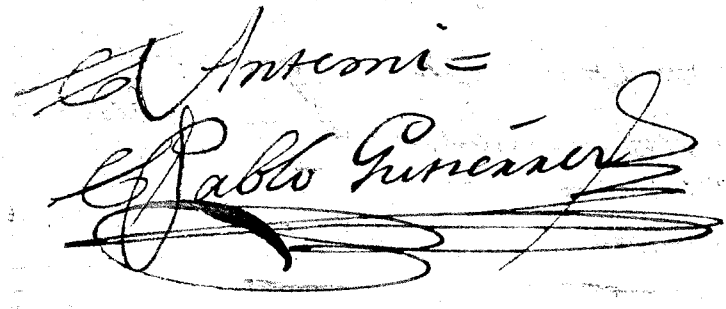 Antemi=
Pablo Gutiérrez